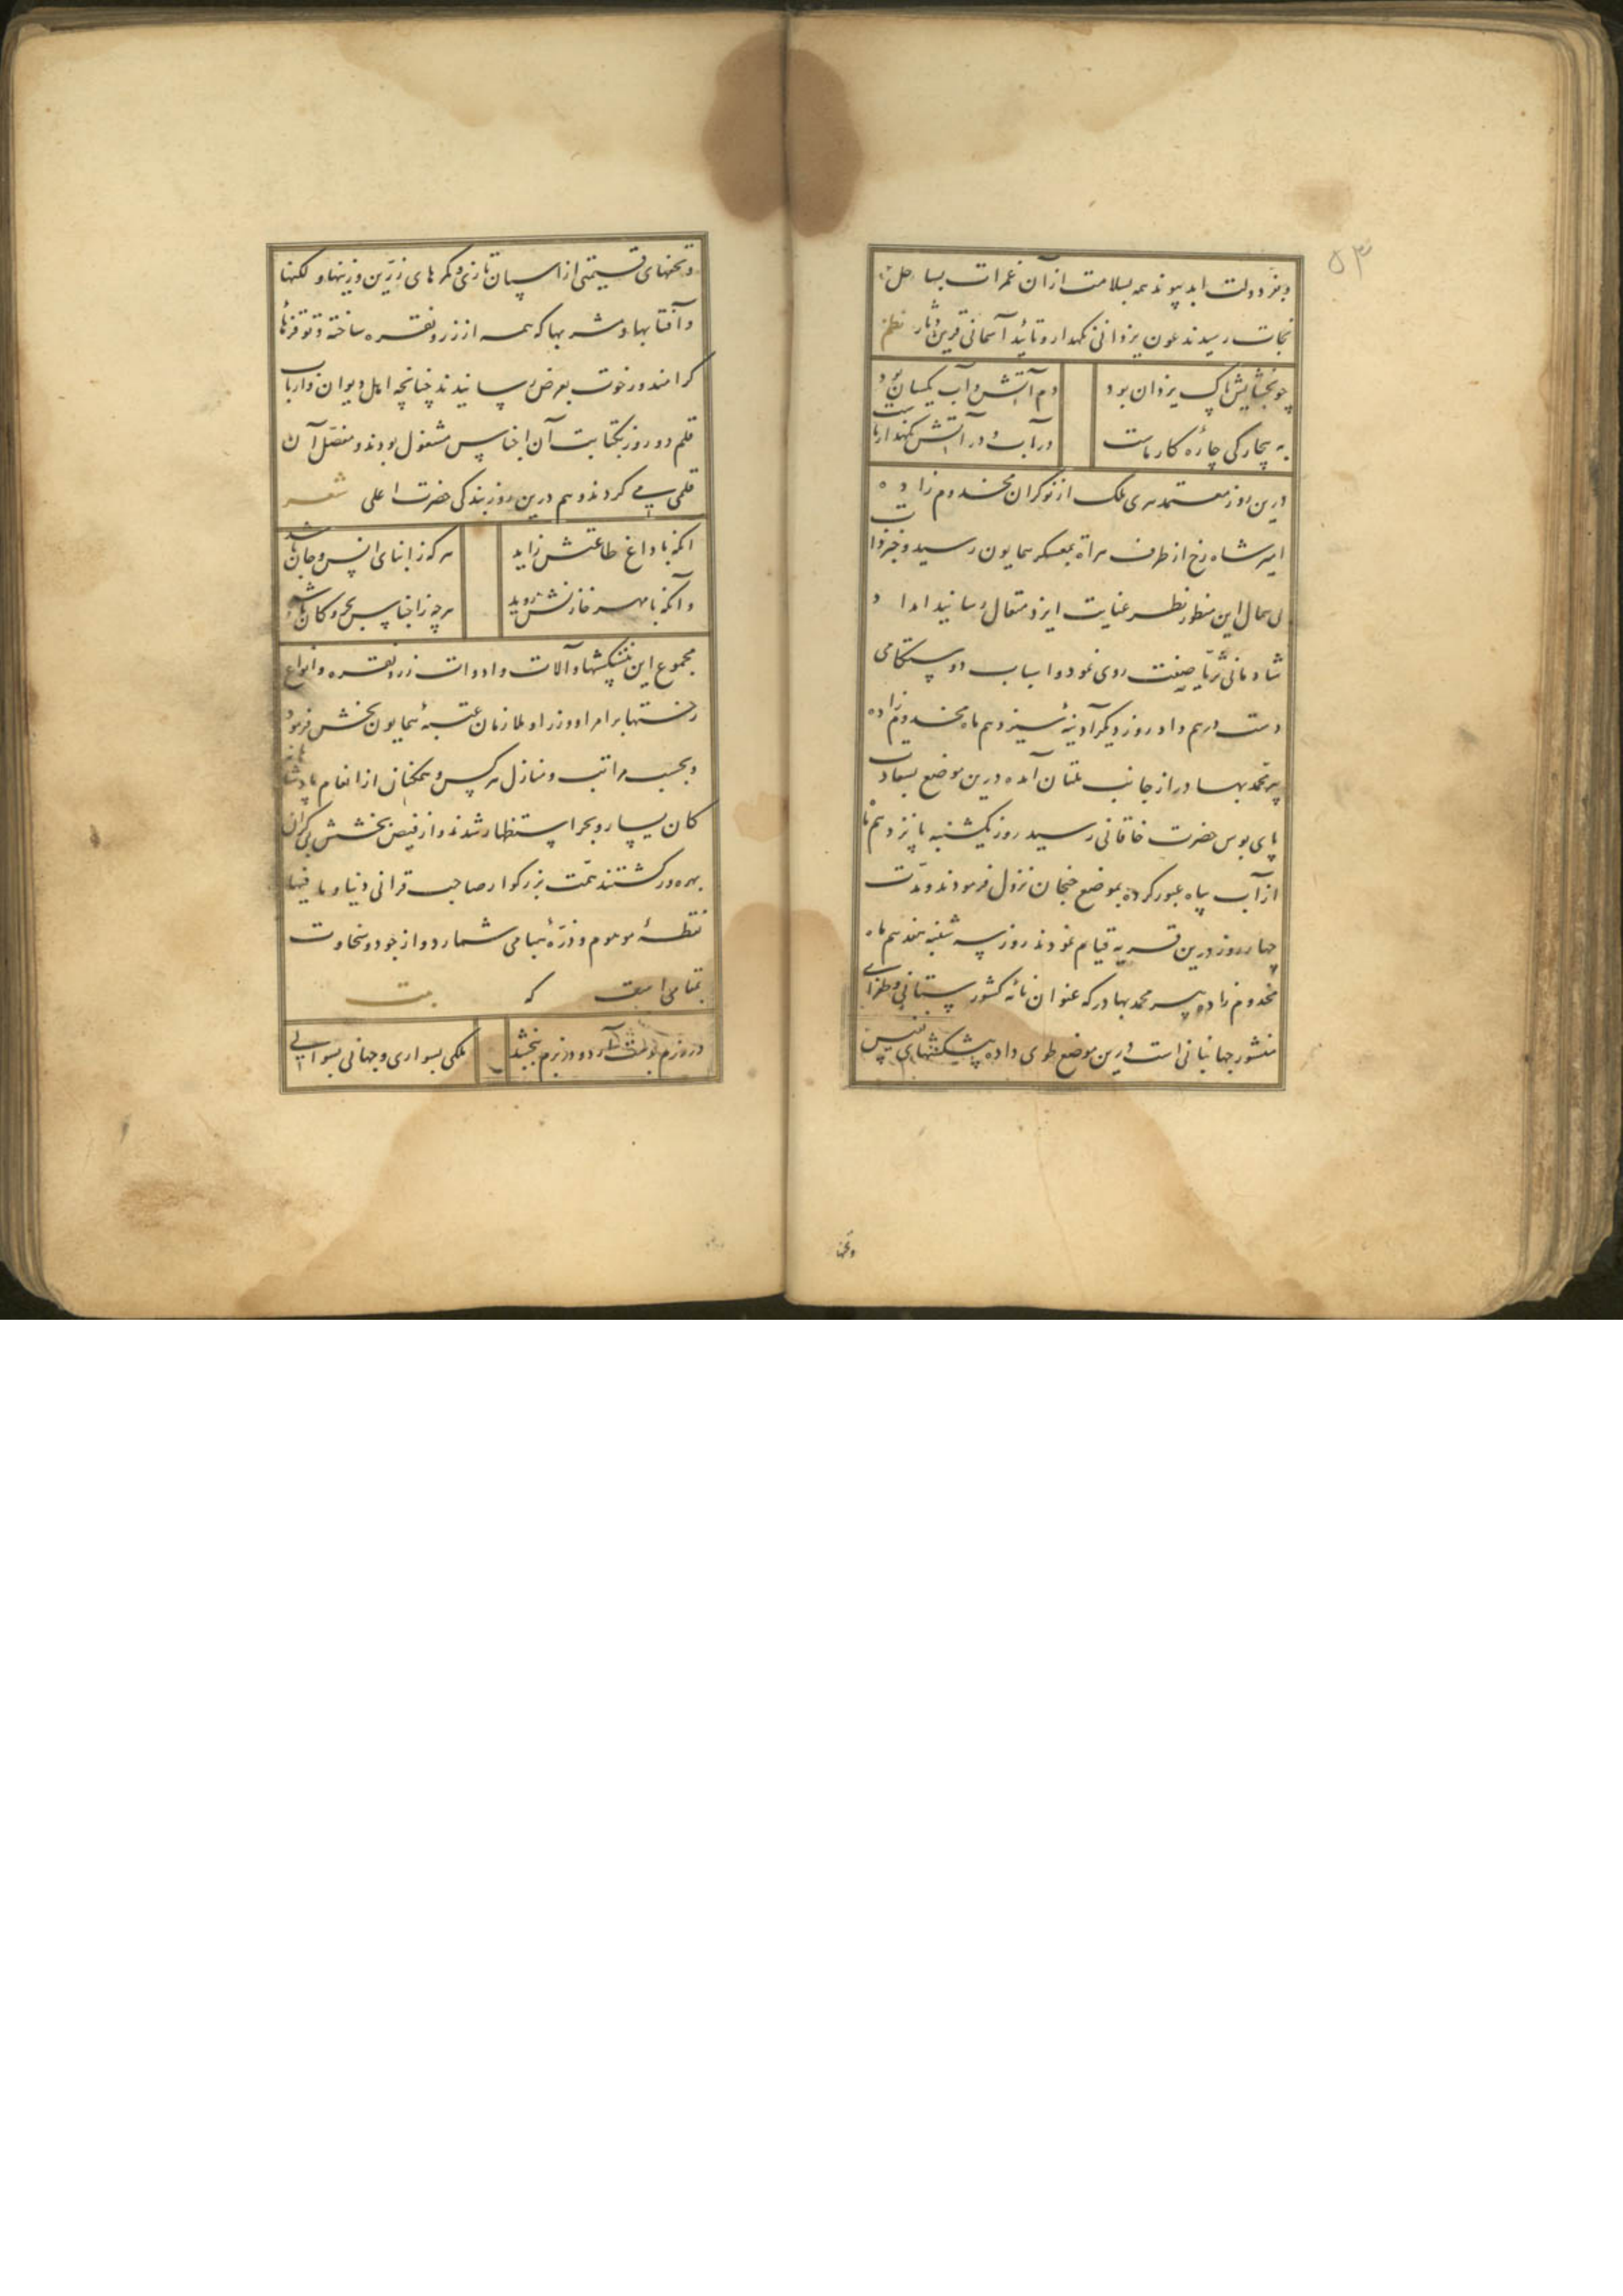 ۵۳
و بفرّ دولت ابد پیوند همه بسلامت از آن غمرات بساحل
نجات رسیدند عون یزدانی نکهدار و تایٔید آسمانی قرین و یار نظم
چو بخشایش پاک یزدان بود دم آتش و آب یکسان بود
به بیچارکی چارٔه کار ماست در آب و در آتش نکهدار ماست
درین روز معتمد هری ملک از نوکران مخدوم زاده
امیر شاه رخ از طرف هراة بمعسکر همایون رسید و خبر
حال این منظور نظر عنایت ایزد متعال رسانید امداد
شادمانی ثریّا صفت روی نمود و اسباب دوستکامی
دست درهم داد روز دیکر آدینهٔ سیزدهم ماه مخدوم زاده
پیر محمد بهادر از جانب ملتان آمده درین موضع بسعادت
پای بوس حضرت خاقانی رسید روز یکشنبه پانزدهم ماه
از آب بیاه عبور کرده بموضع جنجان نزول فرمودند و مدّت
چهار روز درین قریه قیام نمودند روز سه شنبه هفدهم ماه
مخدوم زاده پیر محمد بهادر که عنوان نامٔه کشورستانی و طغرای
منشور جهانبانی است درین موضع طوی داده پیشکشهای نفیس
وتحفها
و تحفهای قیمتی از اسپان تازی و کمرهای زرّین و زینها و لکنها
و آفتابها و مشربها که همه از زر و نقره ساخته و توقوزهاء
کرامند و رخوت بعرض رسانیدند چنانچه اهل دیوان و ارباب
قلم دو روز بکتابت آن اجناس مشغول بودند و مفصّل آن
قلمی می کردند و هم درین روز بندکی حضرت اعلی شعر
آنکه با داغ طاعتش زاید هر که ز ابنای انس و جان باشد
و آنکه با مهر خازنش روید هر چه ز اجناس بحر و کان باشد
مجموع این پیشکشها و آلات و ادوات زر و نقره و انواع
رختها بر امرا و وزرا و ملازمان عتبهٔ همایون بخش فرمود
و بحسب مراتب و منازل هر کس و همکنان از انعام پادشاهانه
کان یسار و بحر استظهار شدند و از فیض بخشش بی کران
بهره ور کشتند همّت بزرکوار صاحب قرانی دنیا و ما فیها
نقطهٔ موهوم و ذرّهٔ هبا می شمارد و از جود و سخاوت
که بیت
در رزم آرد و در بزم ببخشد ملکی بسواری و جهانی بسوالی